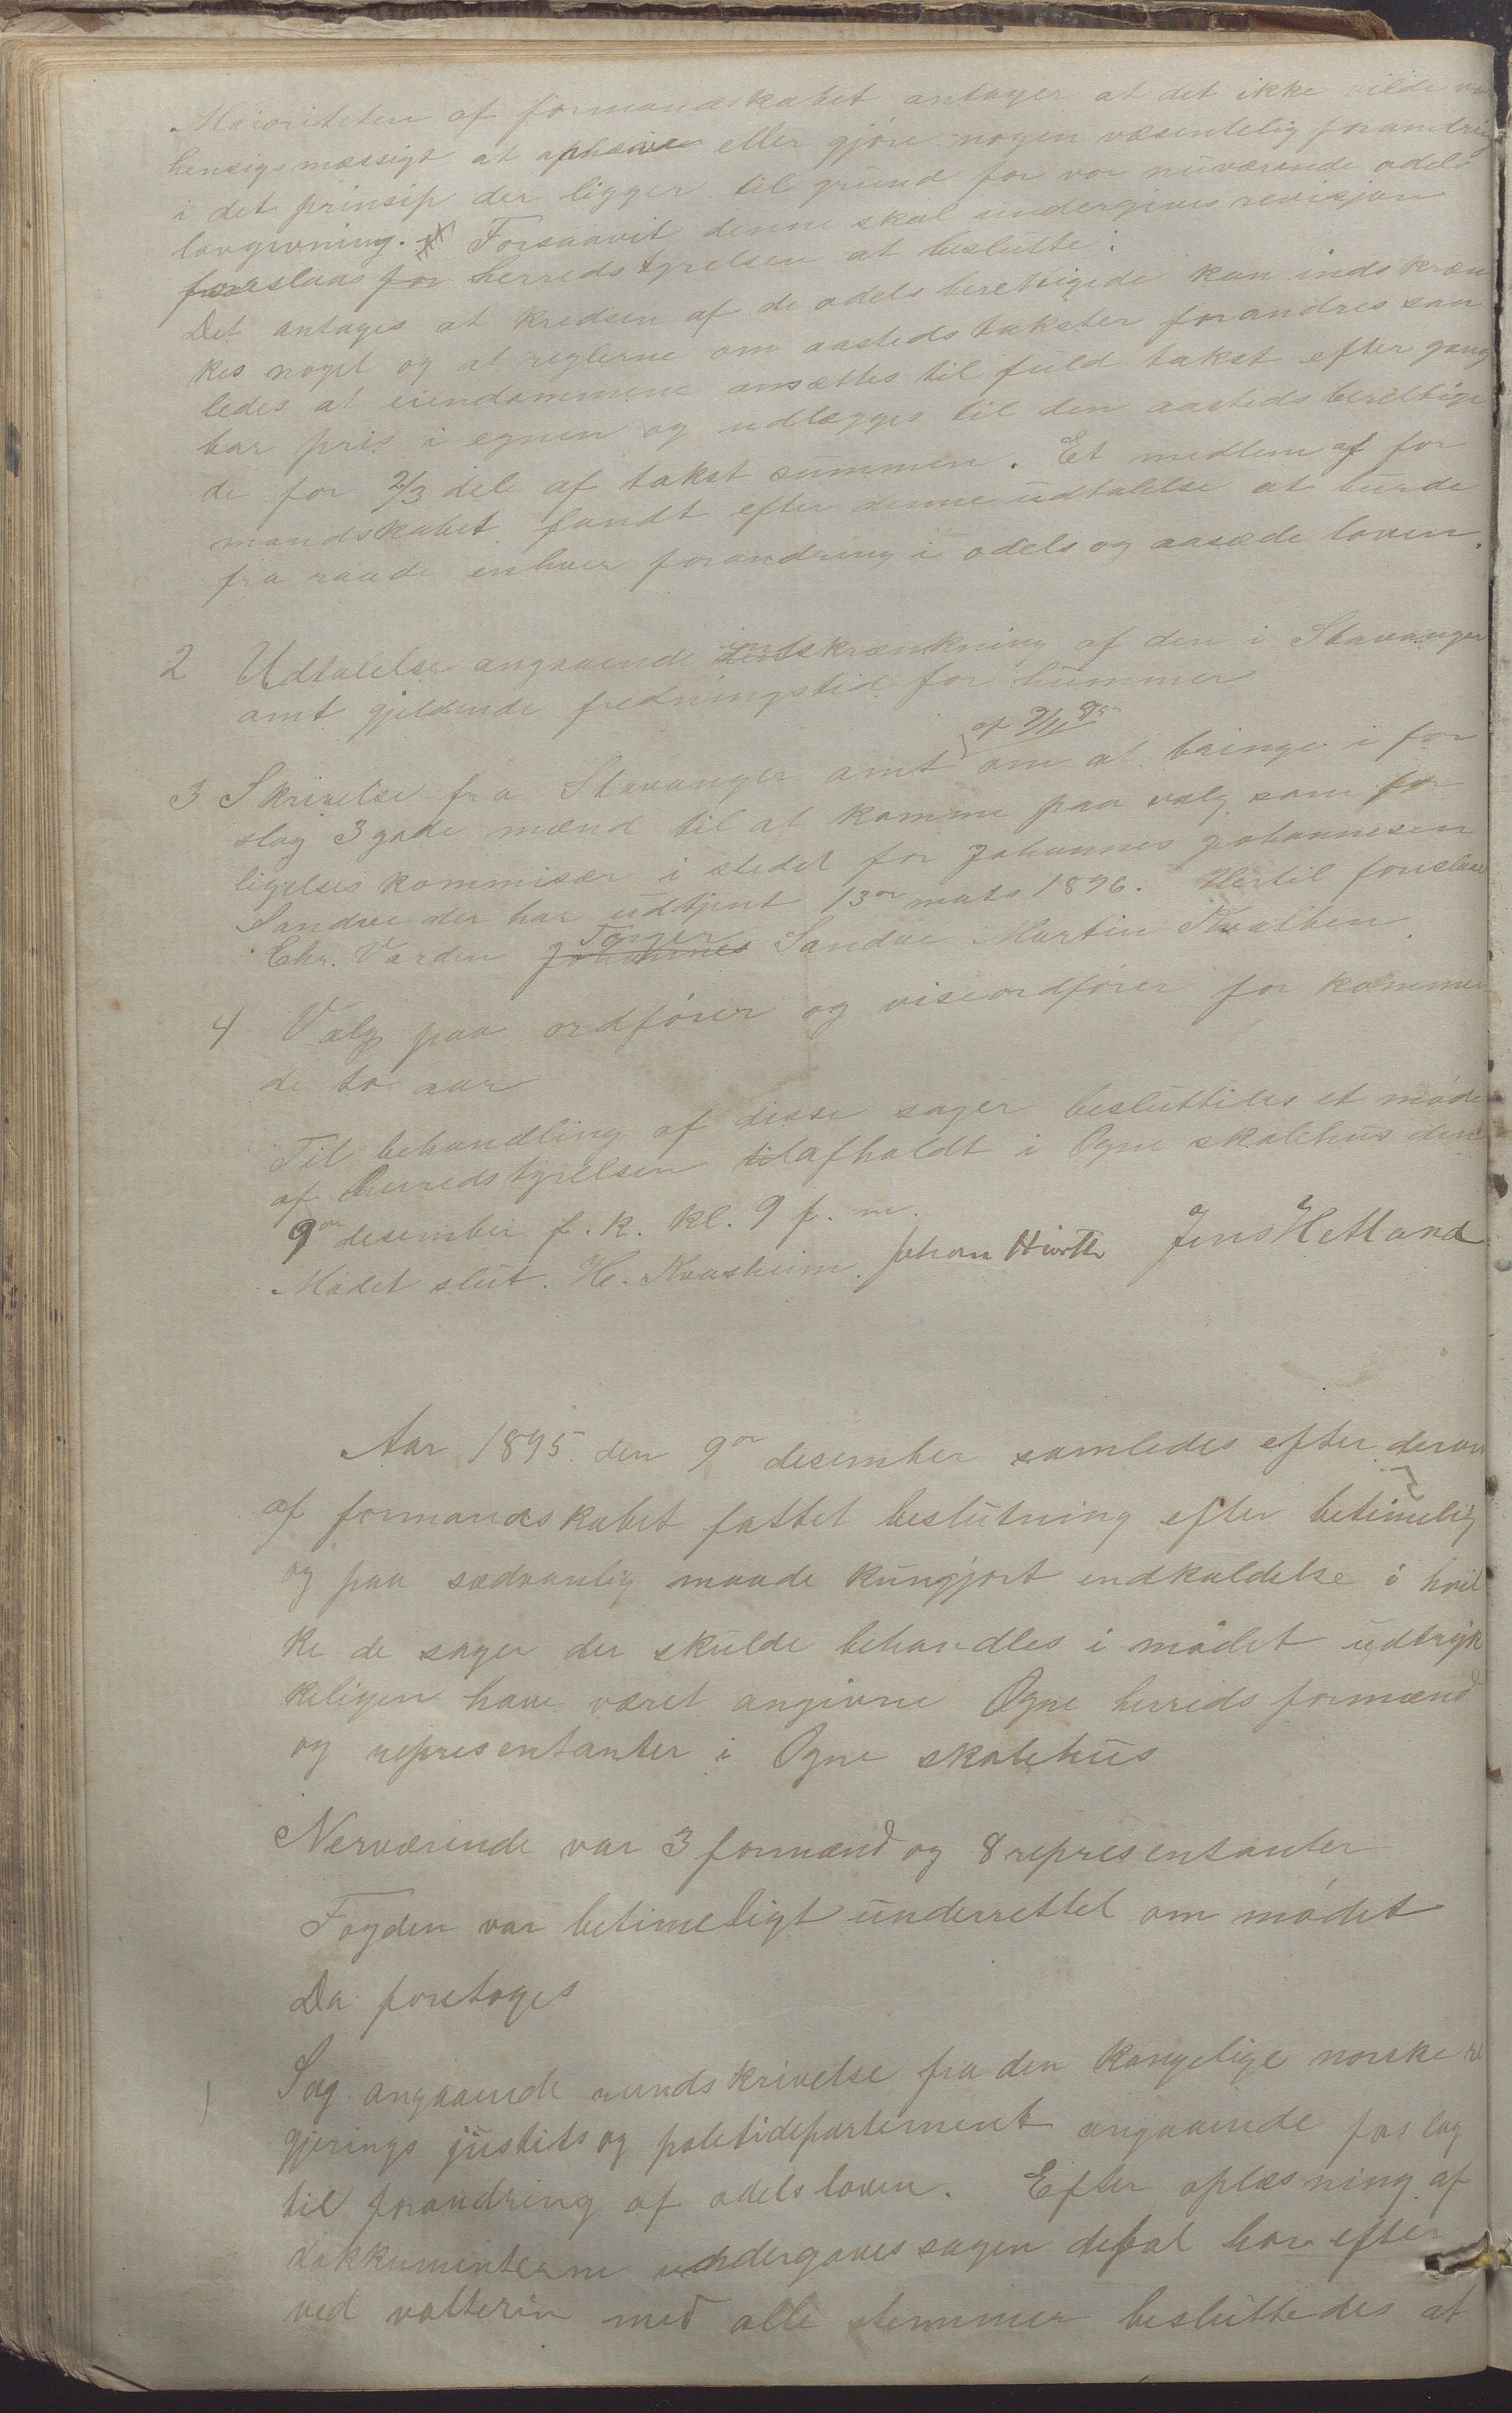 Majoriteten af formandskabet antager at det ikke vilde væ
hensigsmæssigt at ophæve eller gjöre nogen væsentelig forandring
i det prinsip der ligger til grund for vor nuværende odels
lovgivning. Forsaavit denne skal undergives revisjon
foreslaas for herredstyrelsen at beslutte:
Det antages at kredsen af de odelsberettigede kan indskræn
kes noget og at reglerne om aastedstakster forandres saa
ledes at eiendommene ansættes til fuld takst efter gang
bar pris i egnen og udlægges til den aastedsberettige
de for 2/3 dele af takst summen. Et medlem af for
mandskabet fandt efter denne udtalelse at burde
fra raade enhver forandring i odels og aasæde loven.
2 Udtalelse angaaende indskrænkning af den i Stavanger
amt gjeldende fredningstid for hummer
af 7/11 95
3 Skrivelse fra Stavanger amt om at bringe i for
slag 3 gode mænd til at komme paa valg som for
ligelses kommisær i stedet for Johannes Johannesen
Sandve der har udtjent 13de mats 1896. Hertil foreslaaes
Tonger
Chr. Varden Johannes Sandve Martin Kvalben.
4 Valg paa ordförer og viseordförer for kommen
de to aar
Til behandling af disse sager besluttedes et möde
af herredstyrelsen tilafholdt i Ogne skolehus den
9de desember f. k. kl. 9 f. m.
Mödet slut. H. Kvasheim. Johan Hirth Jens Hetland
Aar 1895 den 9de desember samledes efter derom
af formandskabet fattet beslutning efter betimelig
og paa sædvanlig maade kungjort indkaldelse i hvil
ke de sager der skulde behandles i mödet udtryk
keligen have været angivne Ogne herreds formænd
og representanter i Ogne skolehus
Nerværende var 3 formænd og 8 representanter
Fogden var betimeligt underrettet om mödet
Da foretoges
1 Sag angaaende rundskrivelse fra den kongelige norske re
gjerings justits og politidepartement angaaende forslag
til forandring af odelsloven. Efter oplæsning af
dokkumenterne undergaves sagen debat hvor efter
ved vottering med alle stemmer besluttedes at